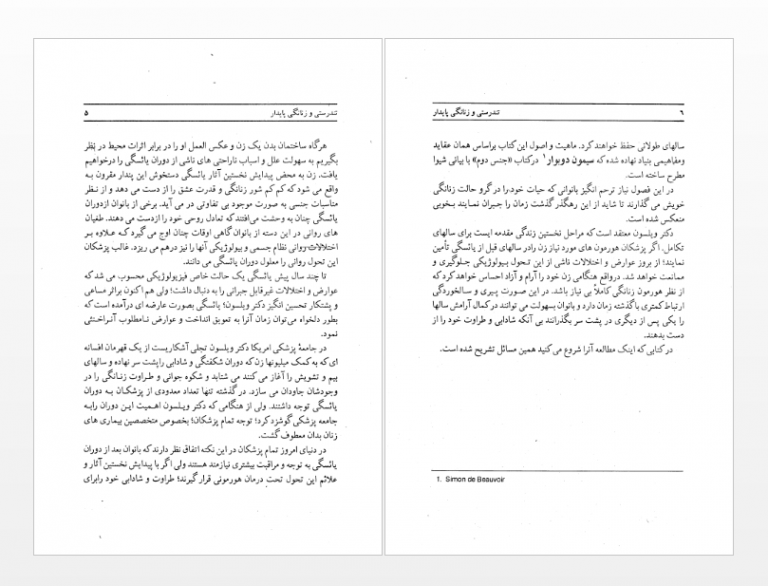 تندرستی و زنانگی پایدار ۵
هرگاه ساختمان بدن یک زن و عکس العمل او را در برابر اثرات محیط در نظر
بگیریم به سهولت علل و اسباب ناراحتی های ناشی از دوران یائسگی را درخواهیم
یافت. زن به محض پیدایش نخستین آثار یائسگی دستخوش این پندار مقرون به
واقع می شود که کم کم شور زنانگی و قدرت عشق را از دست می دهد و از نظر
مناسبات جنسی به صورت موجود بی تفاوتی در می آید. برخی از بانوان ازدوران
یائسگی چنان به وحشت می‌افتندکه تعادل روحی خود را ازدست می دهند. طغیان
های روانی در این دسته از بانوان گاهی اوقات چنان اوج می گیرد که علاوه بر
اختلالات روانی نظام جسمی و بیولوژیکی آنها را نیز درهم می ریزد. غالب پزشکان
این تحول روانی را معلول دوران یائسگی می دانند.
تا چند سال پیش یائسگی یک حالت خاص فیزیولوژیکی محسوب می شد که
عوارض و اختلالات غیرقابل جبرانی را به دنبال داشت؛ ولی هم اکنون براثر مساعی
و پشتکار تحسین انگیز دکتر ویلسون؛ یائسگی بصورت عارضه ای درآمده است که
بطور دلخواه می‌توان زمان آنرا به تعویق انداخت و عوارض نامطلوب آنراخنثی
نمود.
در جامعهٔ پزشکی امریکا دکتر ویلسون تجلی آشکاریست از یک قهرمان افسانه
ای که به کمک میلیونها زن که دوران شکفتگی و شادابی راپشت سر نهاده و سالهای
بیم و تشویش را آغاز می کنند می شتابد و شکوه جوانی و طراوت زنانگی را در
وجودشان جاودان می سازد. در گذشته تنها تعداد معدودی از پزشکان به دوران
یائسگی توجه داشتند. ولی از هنگامی که دکتر ویلسون اهمیت این دوران رابه
جامعه پزشکی گوشزد کرد؛ توجه تمام پزشکان؛ بخصوص متخصصین بیماری های
زنان بدان معطوف گشت.
در دنیای امروز تمام پزشکان در این نکته اتفاق نظر دارند که بانوان بعد از دوران
یائسگی به توجه و مراقبت بیشتری نیازمند هستند ولی اگر با پیدایش نخستین آثار و
علائم این تحول تحت درمان هورمونی قرار گیرند؛ طراوت و شادابی خود رابرای
۶ تندرستی و زنانگی پایدار
سالهای طولانی حفظ خواهند کرد. ماهیت و اصول این کتاب براساس همان عقاید
ومفاهیمی بنیاد نهاده شده که سیمون دوبوار۱ درکتاب «جنس دوم» با بیانی شیوا
مطرح ساخته است.
در این فصول نیاز ترحم انگیز بانوانی که حیات خود را در گرو حالت زنانگی
خویش می گذارند تا شاید از این رهگذر گذشت زمان را جبران نمایند بخوبی
منعکس شده است.
دکتر ویلسون معتقد است که مراحل نخستین زندگی مقدمه ایست برای سالهای
تکامل. اگر پزشکان هورمون های مورد نیاز زن رادر سالهای قبل از یائسگی تأمین
نمایند؛ از بروز عوارض و اختلالات ناشی از این تحول بیولوژیکی جلوگیری و
ممانعت خواهد شد. درواقع هنگامی زن خود را آرام و آزاد احساس خواهد کرد که
از نظر هورمون زنانگی کاملاً بی نیاز باشد. در این صورت پیری و سالخوردگی
ارتباط کمتری باگذشته زمان دارد و بانوان بسهولت می توانند در کمال آرامش سالها
را یکی پس از دیگری در پشت سر بگذرانند بی آنکه شادابی و طراوت خود را از
دست بدهند.
در کتابی که اینک مطالعه آنرا شروع می کنید همین مسائل تشریح شده است.
1. Simon de Beauvoir